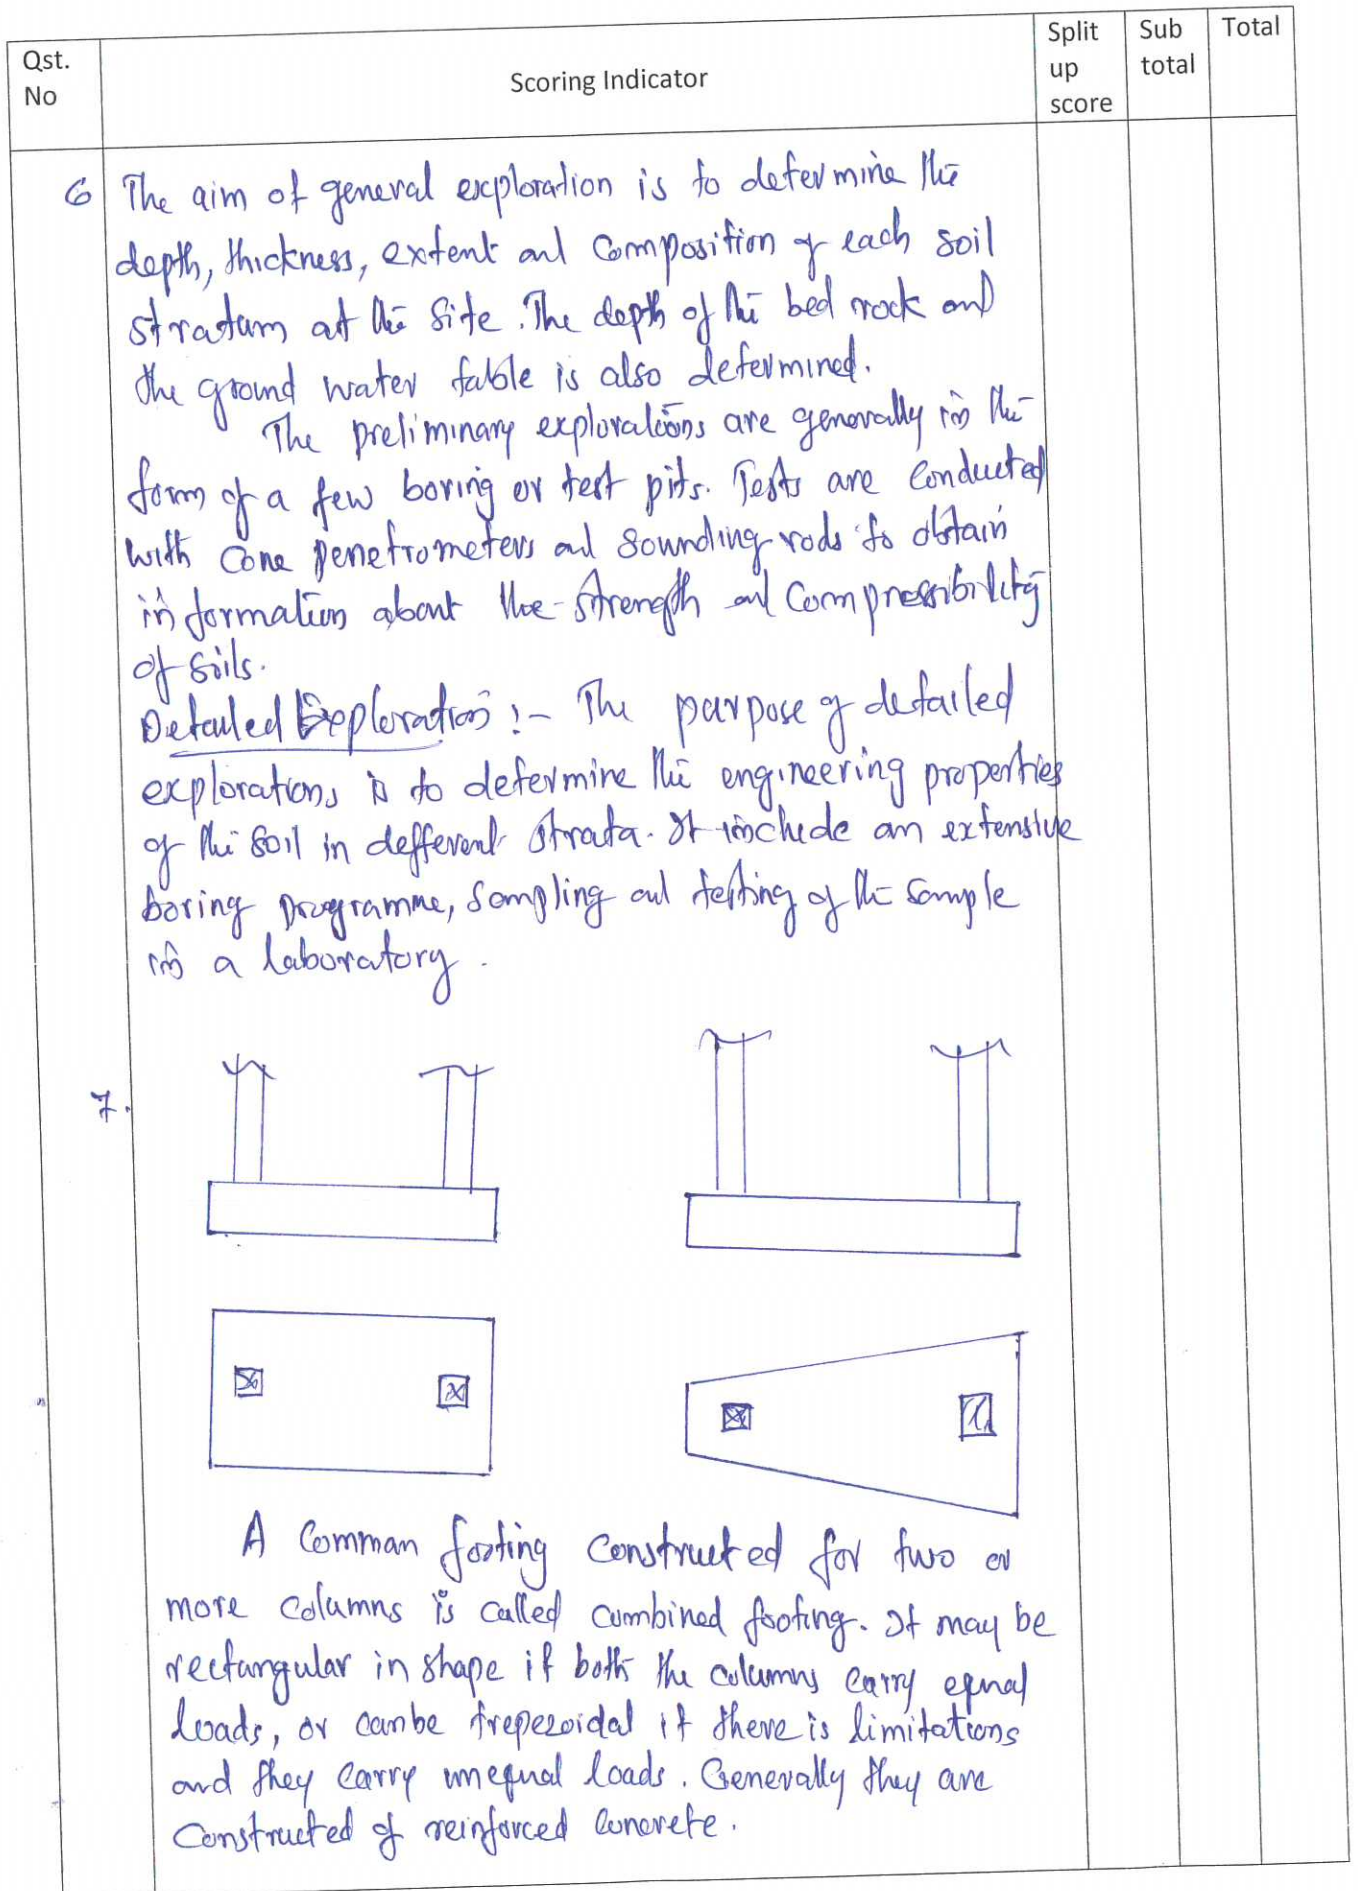 Qst. No
Scoring Indicator
Split up score
Sub total
Total
6 The aim of general exploration is to determine the
depth, thickness, extent and composition of each soil
stratum at the site. The depth of the bed rock and
the ground water table is also determined.
The preliminary explorations are generally in the
form of a few boring or test pits. Tests are conducted
with cone penetrometers and sounding rods to obtain
information about the strength and compressibility
of soils.
Detailed Exploration :- The purpose of detailed
explorations is to determine the engineering properties
of the soil in defferent strata. It include an extensive
boring programme, sampling and testing of the sample
in a laboratory.
7.
A Comman footing constructed for two or
more columns is called cumbined footing. It may be
rectangular in shape if both the columns carry equal
loads, or canbe trepezoidal if there is limitations
and they carry unequal loads. Generally they are
constructed of reinforced concrete.